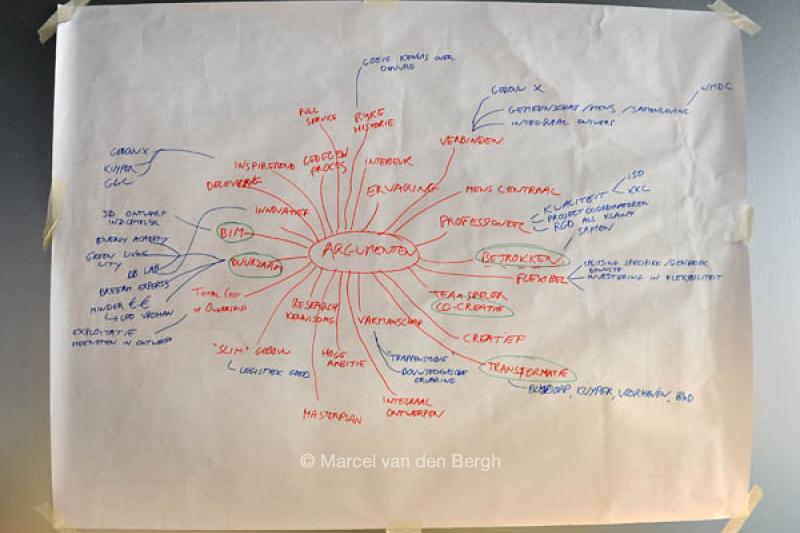 GOEIE KENNIS OVER
OEUVRE
GEBOUW X
GEMEENSCHAP/MENS/SAMENLEVING
WMDC
INTEGRAAL ONTWERP
FULL
SERVICE
RIJKE
HISTORIE
VERBINDEN
GEBOUW X
KUYPER
GLC
INSPIREREND
GEDEGEN
PROCES
INTERIEUR
ERVARING
MENS CENTRAAL
KWALITEIT
ISO
KKC
PROJECTCOORDINATOREN
RGD ALS KLANT
SAMEN
PROFESSIONEEL
INNOVATIEF
3D ONTWERP
INZICHTELIJK
BIM
ARGUMENTEN
BETROKKEN
ENERGY ACADEMY
GREEN LIVING
CITY
BB LAB
BREEAM EXPERTS
DUURZAAM
FLEXIBEL
SPLITSING SPECIFIEK/GENERIEK
INVESTERING IN FLEXIBILITEIT
MINDER €€
LEO VROMAN
TOTAL COST
OF OWNERSHIP
EXPLOITATIE
MEENEMEN IN ONTWERP
TEAMSPELER
CO-CREATIE
RESEARCH
VAKMANSCHAP
CREATIEF
"SLIM" GEBOUW
LOGISTIEK GOED
HOGE
AMBITIE
"TRAPPENSTUDIE"
BOUWTECHNISCHE
ERVARING
TRANSFORMATIE
KUYPER, VOORHAVEN,
MASTERPLAN
INTEGRAAL
ONTWERPEN
© Marcel van den Bergh